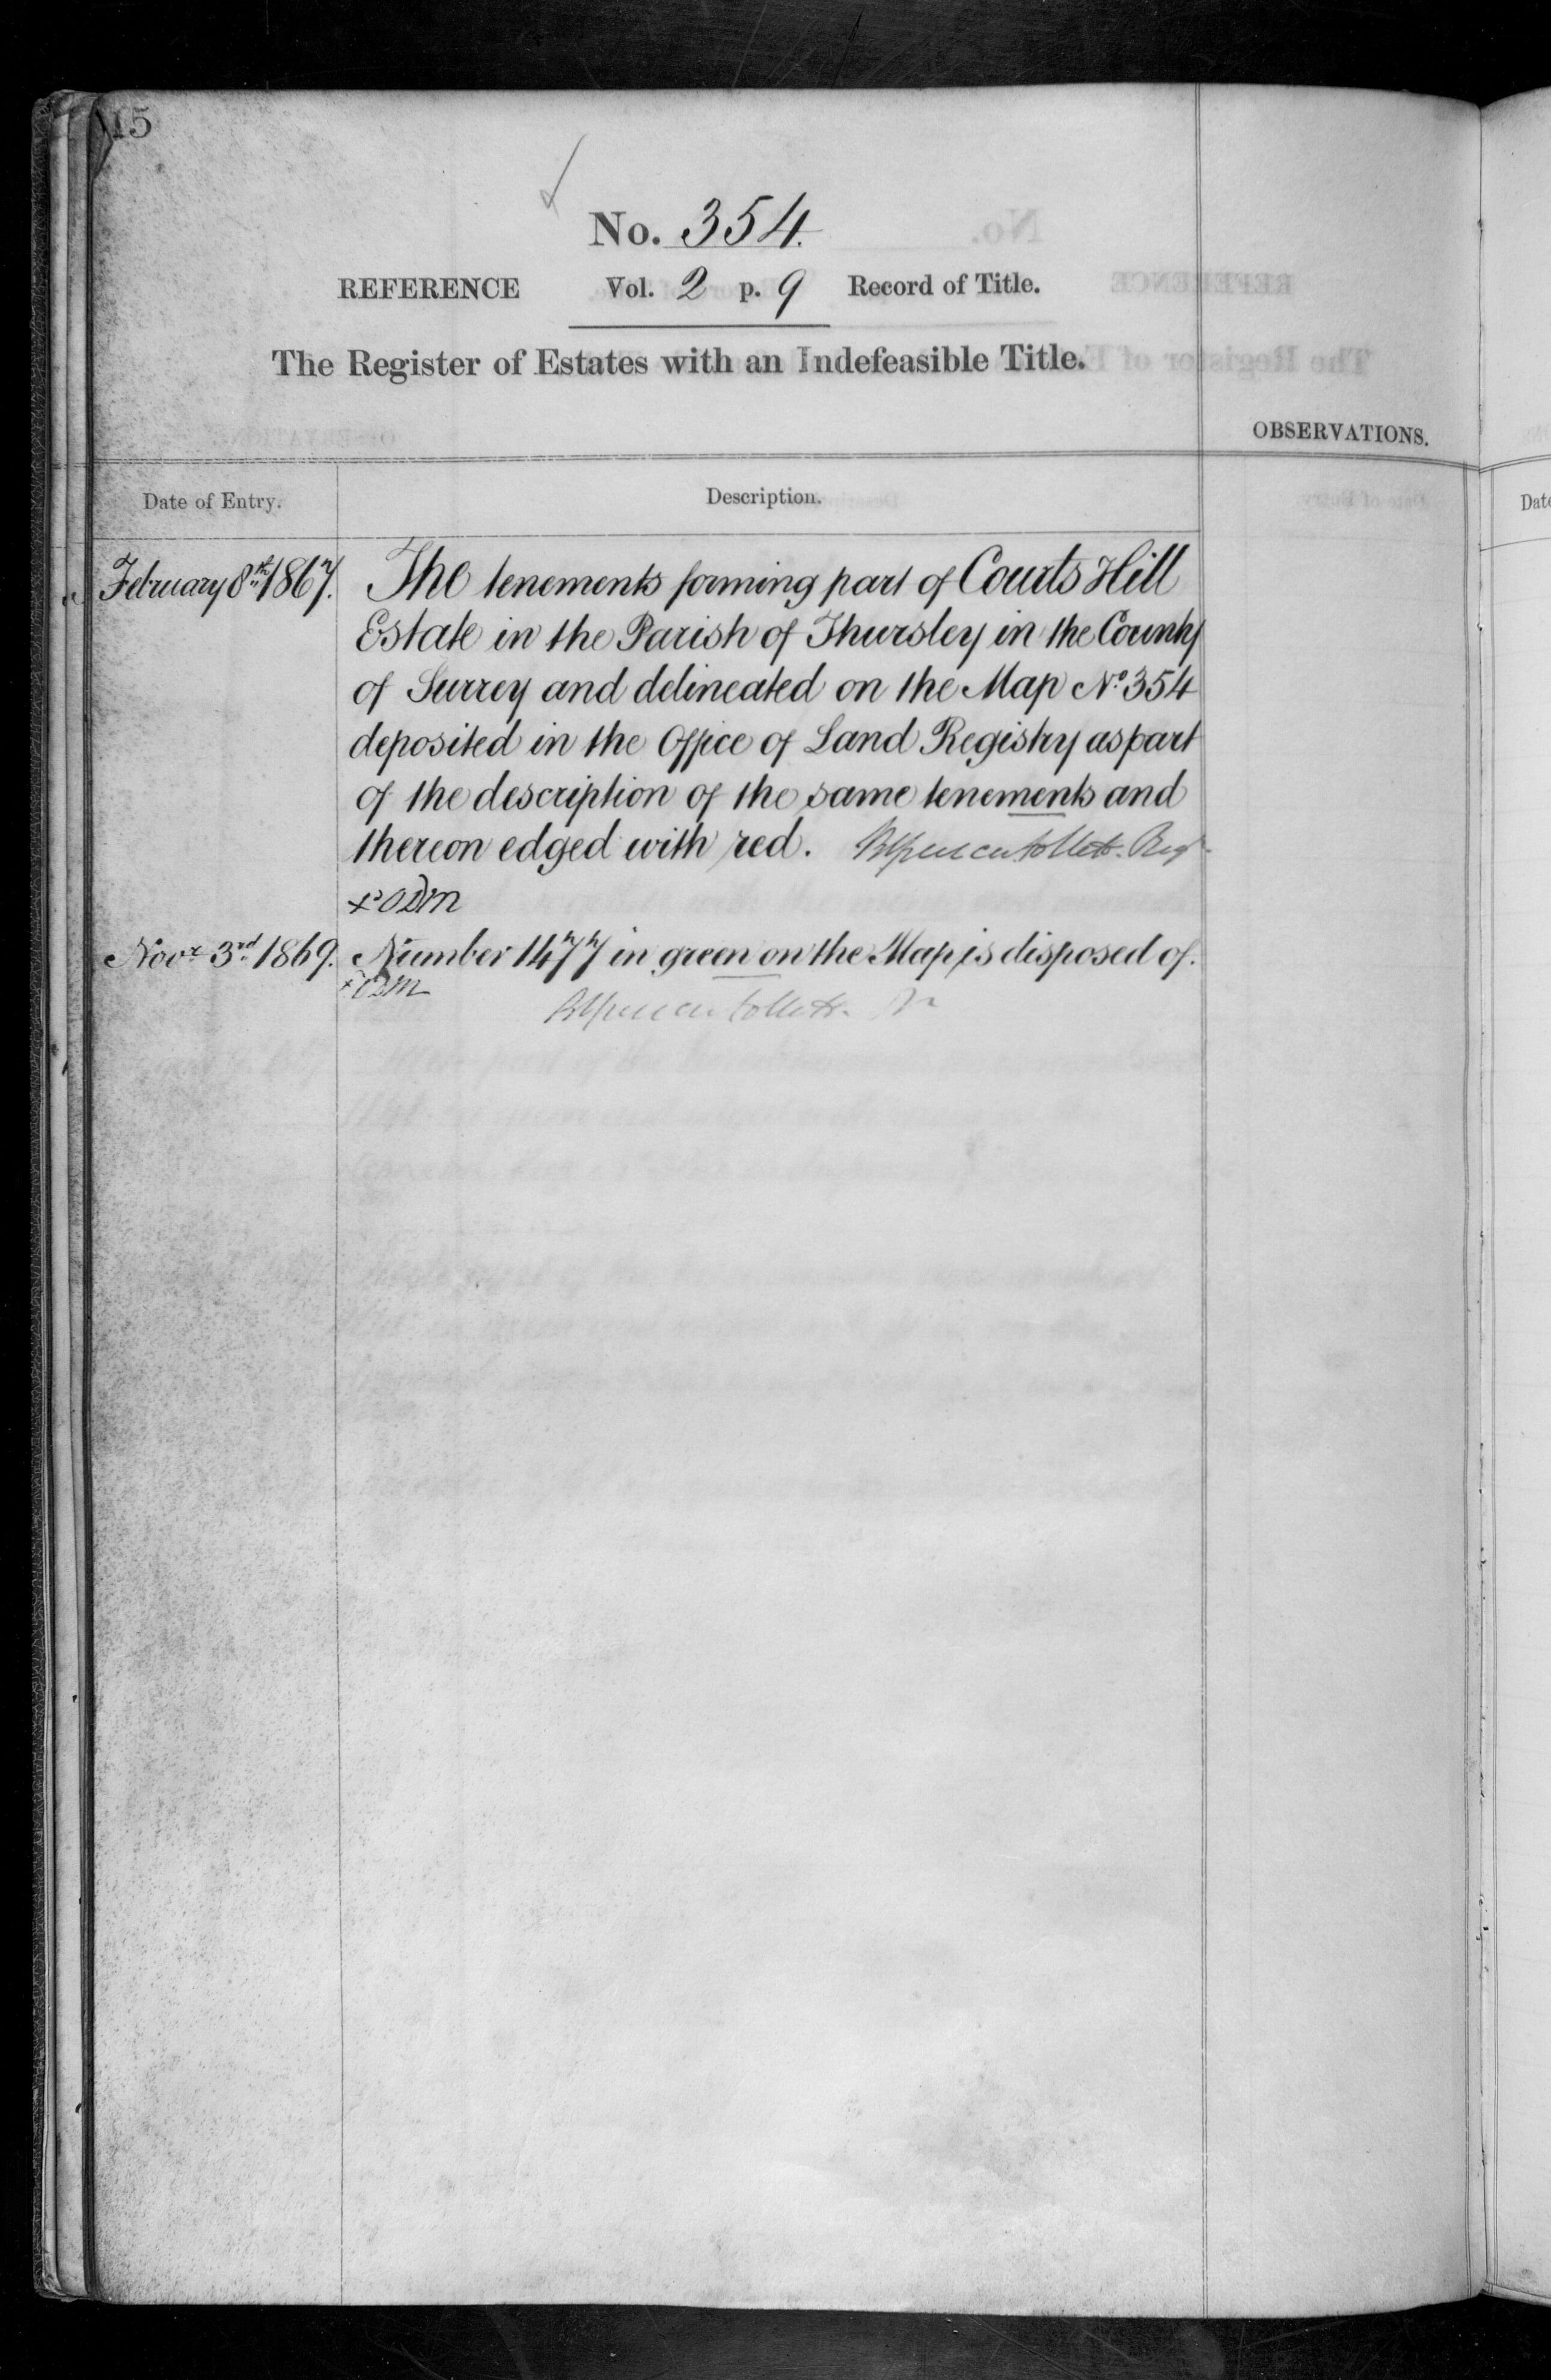 15
No. 354.
REFERENCE Vol. 2 p. 9 Record of Title.
The Register of Estates with an Indefeasible Title.
OBSERVATIONS.
Date of Entry. Description.
February 8th 1867. The tenements forming part of Courts Hill
Estate in the Parish of Thursley in the County
of Surrey and delineated on the Map No. 354
deposited in the Office of Land Registry as part
of the description of the same tenements and
thereon edged with red. Follett. Regr.
Novr. 3rd 1869. Number 1477 in green on the Map is disposed of.
Follett.
Date